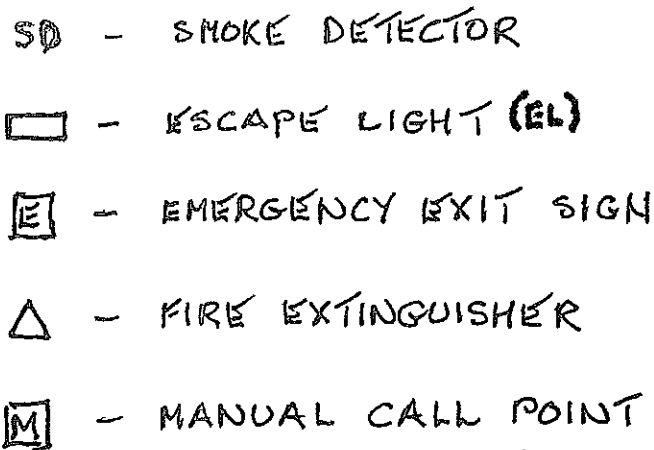 SD - SMOKE DETECTOR
- ESCAPE LIGHT (EL)
E - EMERGENCY EXIT SIGN
- FIRE EXTINGUISHER
M - MANUAL CALL POINT